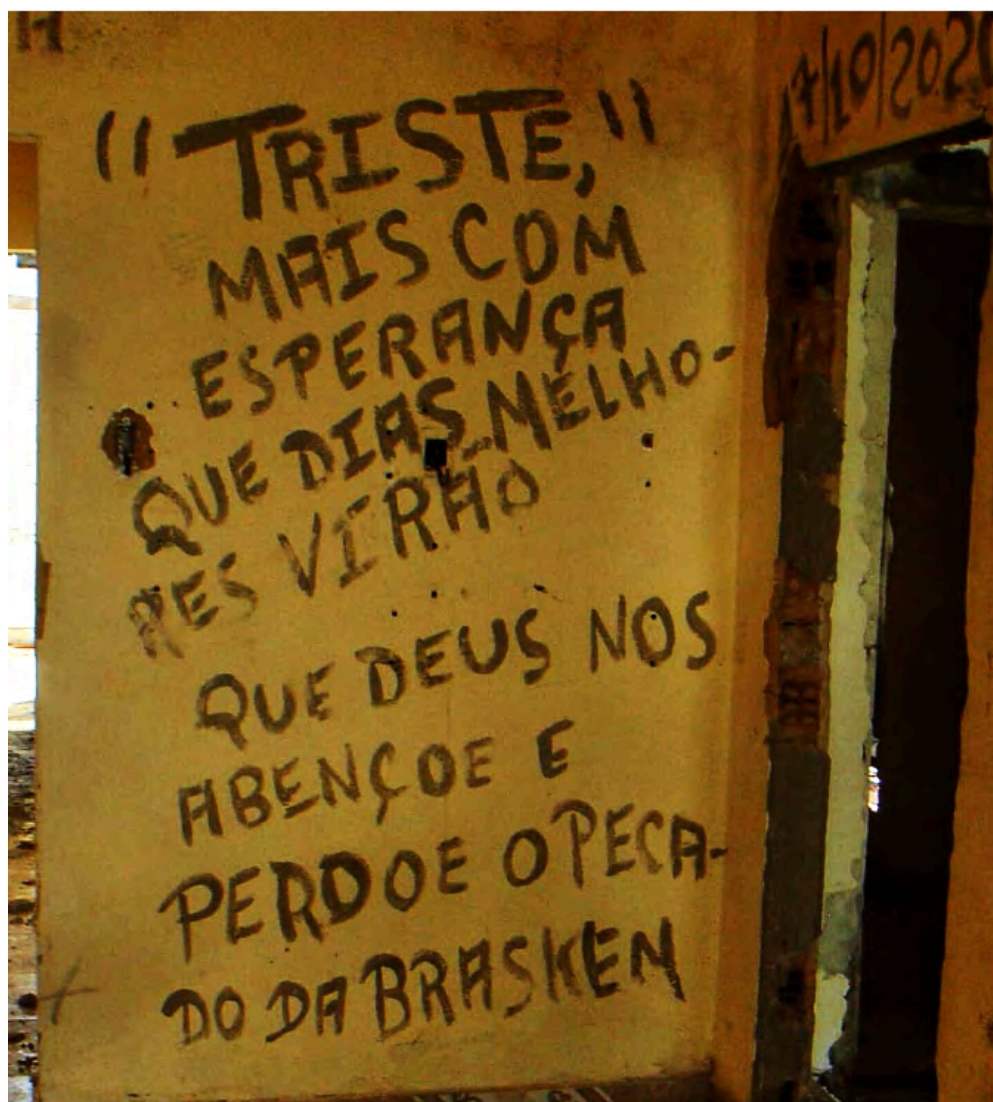 "TRISTE,"
MAIS COM
ESPERANÇA
QUE DIAS MELHO-
RES VIRÃO
QUE DEUS NOS
ABENÇOE E
PERDOE O PECA-
DO DA BRASKEN